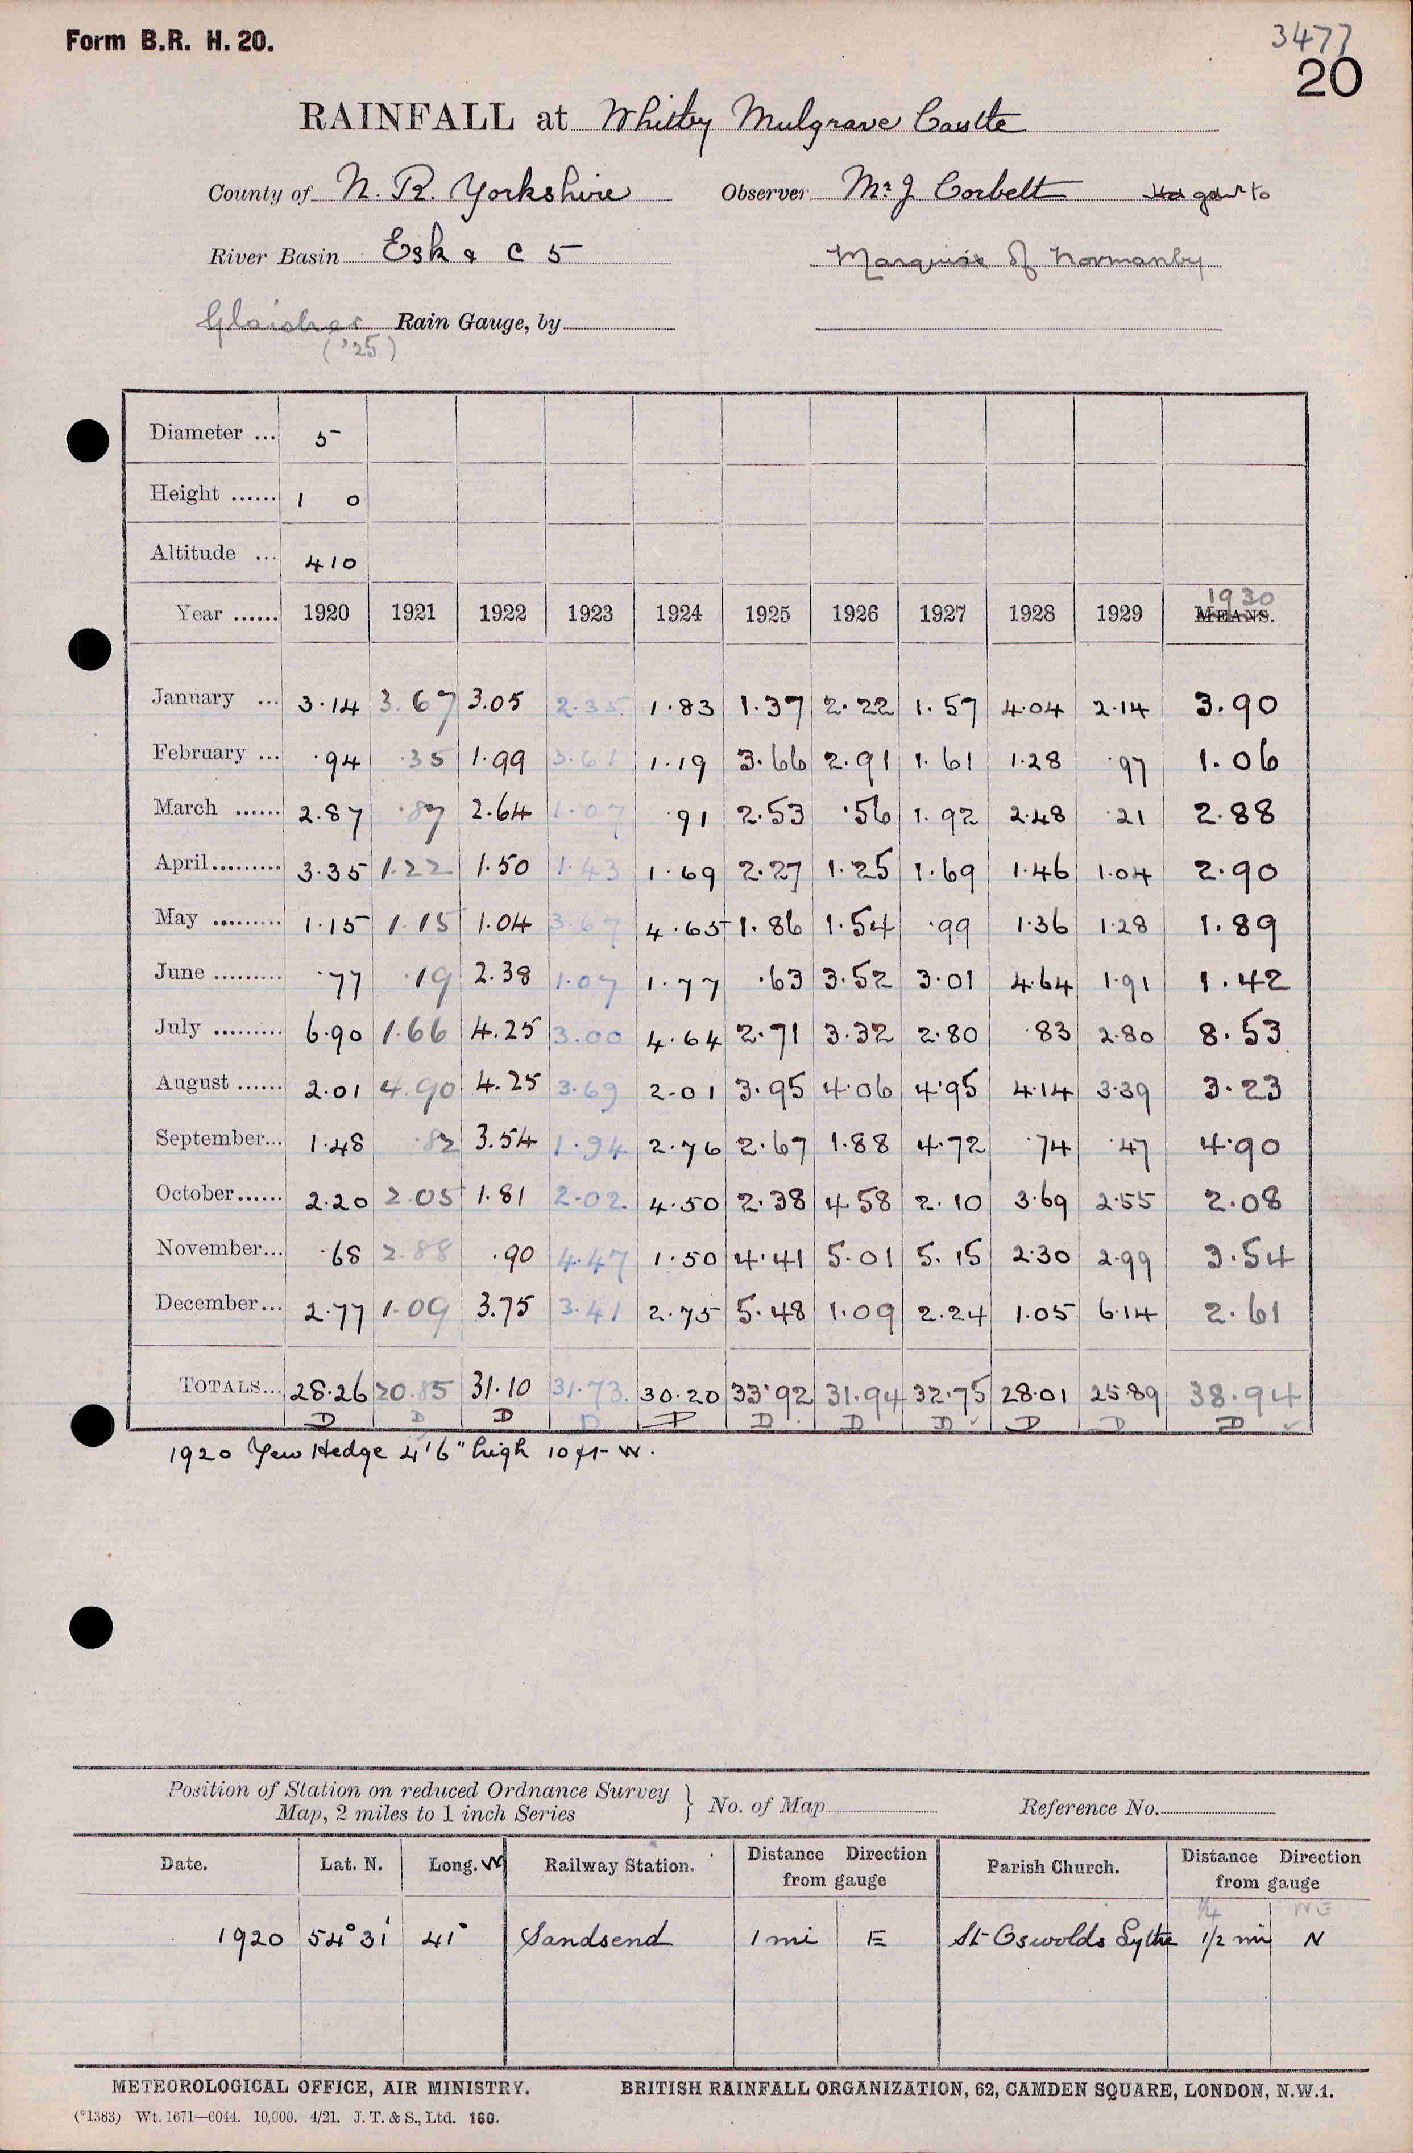 Form B.R. H. 20.
3477
20
RAINFALL at Whitby Mulgrave Castle
County of N. R. Yorkshire Observer Mr J Corbett Hd gdnr to
River Basin Esk & C 5 Marquise of Normanby
Glaisher Rain Gauge, by
('25)
Diameter ... 5
Height ...... 1 0
Altitude ... 410
1930
Year ...... 1920 1921 1922 1923 1924 1925 1926 1927 1928 1929 MEANS.
January ... 3.14 3.67 3.05 2.35 1.83 1.37 2.22 1.57 4.04 2.14 3.90
February ... .94 .35 1.99 3.61 1.19 3.66 2.91 1.61 1.28 .97 1.06
March ...... 2.87 .87 2.64 1.07 .91 2.53 .56 1.92 2.48 .21 2.88
April......... 3.35 1.22 1.50 1.43 1.69 2.27 1.25 1.69 1.46 1.04 2.90
May ......... 1.15 1.15 1.04 3.67 4.65 1.86 1.54 .99 1.36 1.28 1.89
June ......... .77 .19 2.38 1.07 1.77 .63 3.52 3.01 4.64 1.91 1.42
July ......... 6.90 1.66 4.25 3.00 4.64 2.71 3.32 2.80 .83 2.80 8.53
August ...... 2.01 4.90 4.25 3.69 2.01 3.95 4.06 4.95 4.14 3.39 3.23
September... 1.48 .82 3.54 1.94 2.76 2.67 1.88 4.72 .74 .47 4.90
October...... 2.20 2.05 1.81 2.02 4.50 2.38 4.58 2.10 3.69 2.55 2.08
November... .68 2.88 .90 4.47 1.50 4.41 5.01 5.15 2.30 2.99 3.54
December... 2.77 1.09 3.75 3.41 2.75 5.48 1.09 2.24 1.05 6.14 2.61
TOTALS... 28.26 20.85 31.10 31.73 30.20 33.92 31.94 32.75 28.01 25.89 38.94
D D D D D D D D D D D
1920 Yew Hedge 4'6" high 10 ft W.
Position of Station on reduced Ordnance Survey
Map, 2 miles to 1 inch Series } No. of Map Reference No.
Date. Lat. N. Long. W Railway Station. Distance Direction from gauge Parish Church. Distance Direction from gauge
1/4 NE
1920 54° 31' 41' Sandsend 1 mi E St Oswolds Lythe 1/2 mi N
METEOROLOGICAL OFFICE, AIR MINISTRY. BRITISH RAINFALL ORGANIZATION, 62, CAMDEN SQUARE, LONDON, N.W.1.
(*1383) Wt. 1671—6044. 10,000. 4/21. J. T. & S., Ltd. 160.